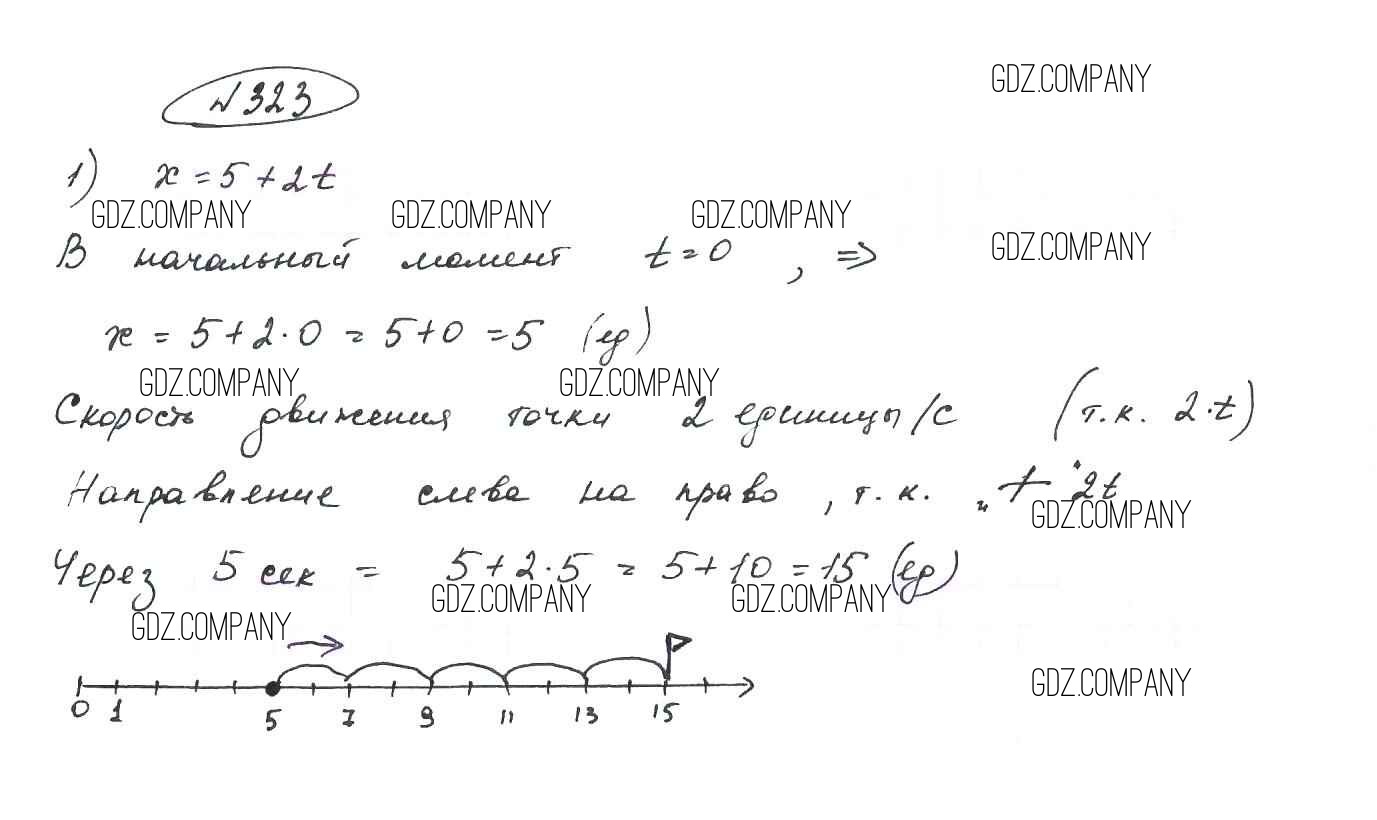 № 323
GDZ.COMPANY
1) x = 5 + 2t
GDZ.COMPANY GDZ.COMPANY GDZ.COMPANY
В начальный момент t = 0 , ⇒
GDZ.COMPANY
x = 5 + 2 · 0 = 5 + 0 = 5 (ед)
GDZ.COMPANY GDZ.COMPANY
Скорость движения точки 2 единицы/с (т.к. 2·t)
Направление слева на право, т.к. „+" 2t
GDZ.COMPANY
Через 5 сек = 5 + 2 · 5 = 5 + 10 = 15 (ед)
GDZ.COMPANY GDZ.COMPANY
GDZ.COMPANY
GDZ.COMPANY
0 1 5 7 9 11 13 15